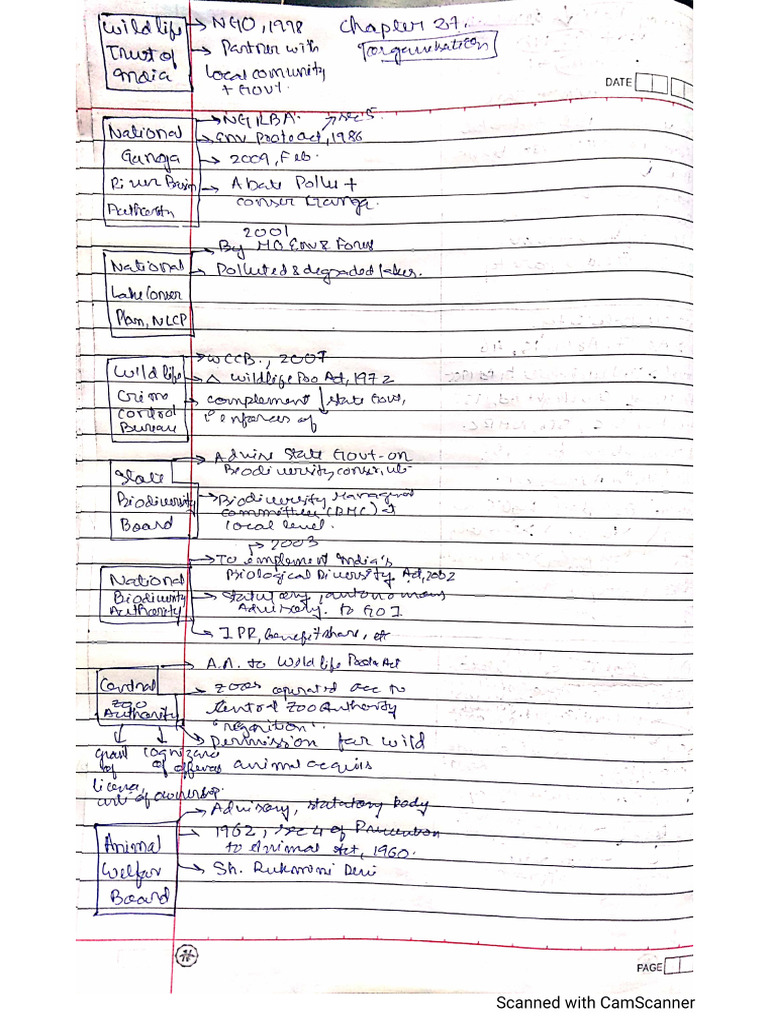 Wildlife → NGO, 1998 Chapter 27.
Trust of → Partner with Organisation
India Local community
+ Govt.
DATE
→ NGRBA. → sec 5
National → Env Proto Act, 1986
Ganga → 2009, Feb.
River Basin → Abate Pollut +
Authority conser Ganga.
2001
→ By MO Env & Forest
National → Polluted & degraded lakes.
Lake Conser
Plan, NLCP
→ WCCB., 2007
Wildlife → Δ Wildlife Poo Act, 1972
Crime → complement ↓ state Govt,
Control enforces of
Bureau
→ Advise State Govt on
State Biodiversity conser, uti
Biodiversity → Biodiversity Managmt
Board committees (BMC) at
local level.
→ 2003
→ To implement India's
National Biological Diversity Act, 2002
Biodiversity → Statutory, autonomous
Authority Advisory. to GOI
→ IPR, benefit share, etc
→ A.A. to Wildlife Prote Act
Central → zoos operated acc to
Zoo Central Zoo Authority
Authority 'regnition'.
→ permission for wild
grant cognizance animal acquis
of of offences
licence,
certi of ownership.
→ Advisory, statutory body
Animal → 1962, sec 4 of Prevention
to Animal Act, 1960.
Welfar → Sh. Rukmini Devi
Board
PAGE
Scanned with CamScanner